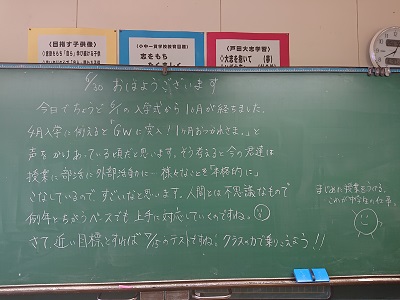 目指す子供像
小中一貫校教育目標
志をもち
戸田大志学習
◇大志を抱いて
6/30 おはようございます
今日でちょうど 6/1の入学式から1ヶ月が経ちました。
4月入学に例えると「GWに突入！1ヶ月おつかれさま。」と
声をかけあっている頃だと思います。そう考えると今の君達は
授業に部活に外部活動に…様々なことを「本格的に」
こなしているので すごいなと思います。人間とは不思議なもので
例年とちがうペースでも 上手に対応していくのですね。
さて、近い目標とすれば 7/15のテストですね。クラスの力で乗りこえよう!!
まじめに授業をうける。
これが学生の仕事。